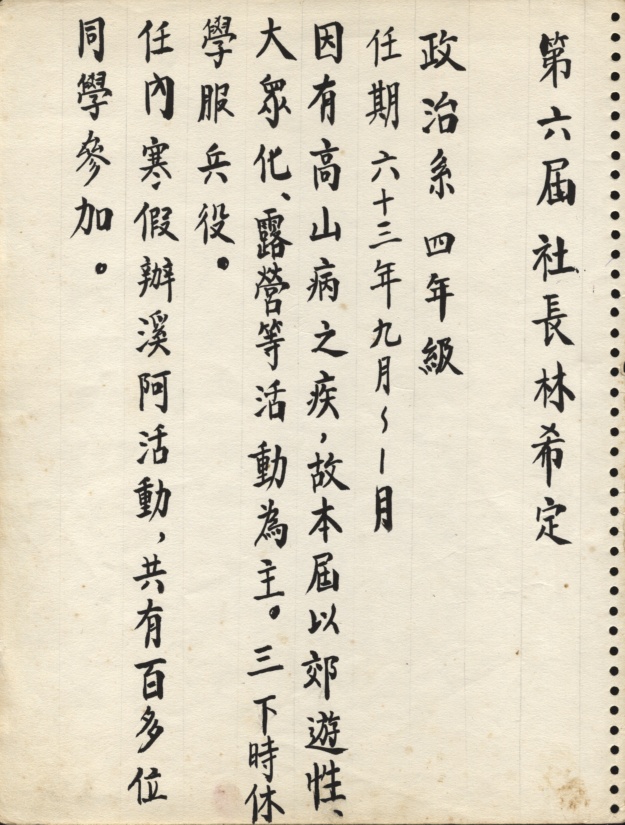 第六届社長林希定
政治系四年級
任期六十三年九月～1月
因有高山病之疾，故本屆以郊遊性、
大眾化、露營等活動為主。三下時休
學服兵役。
任內寒假辦溪阿活動，共有百多位
同學參加。